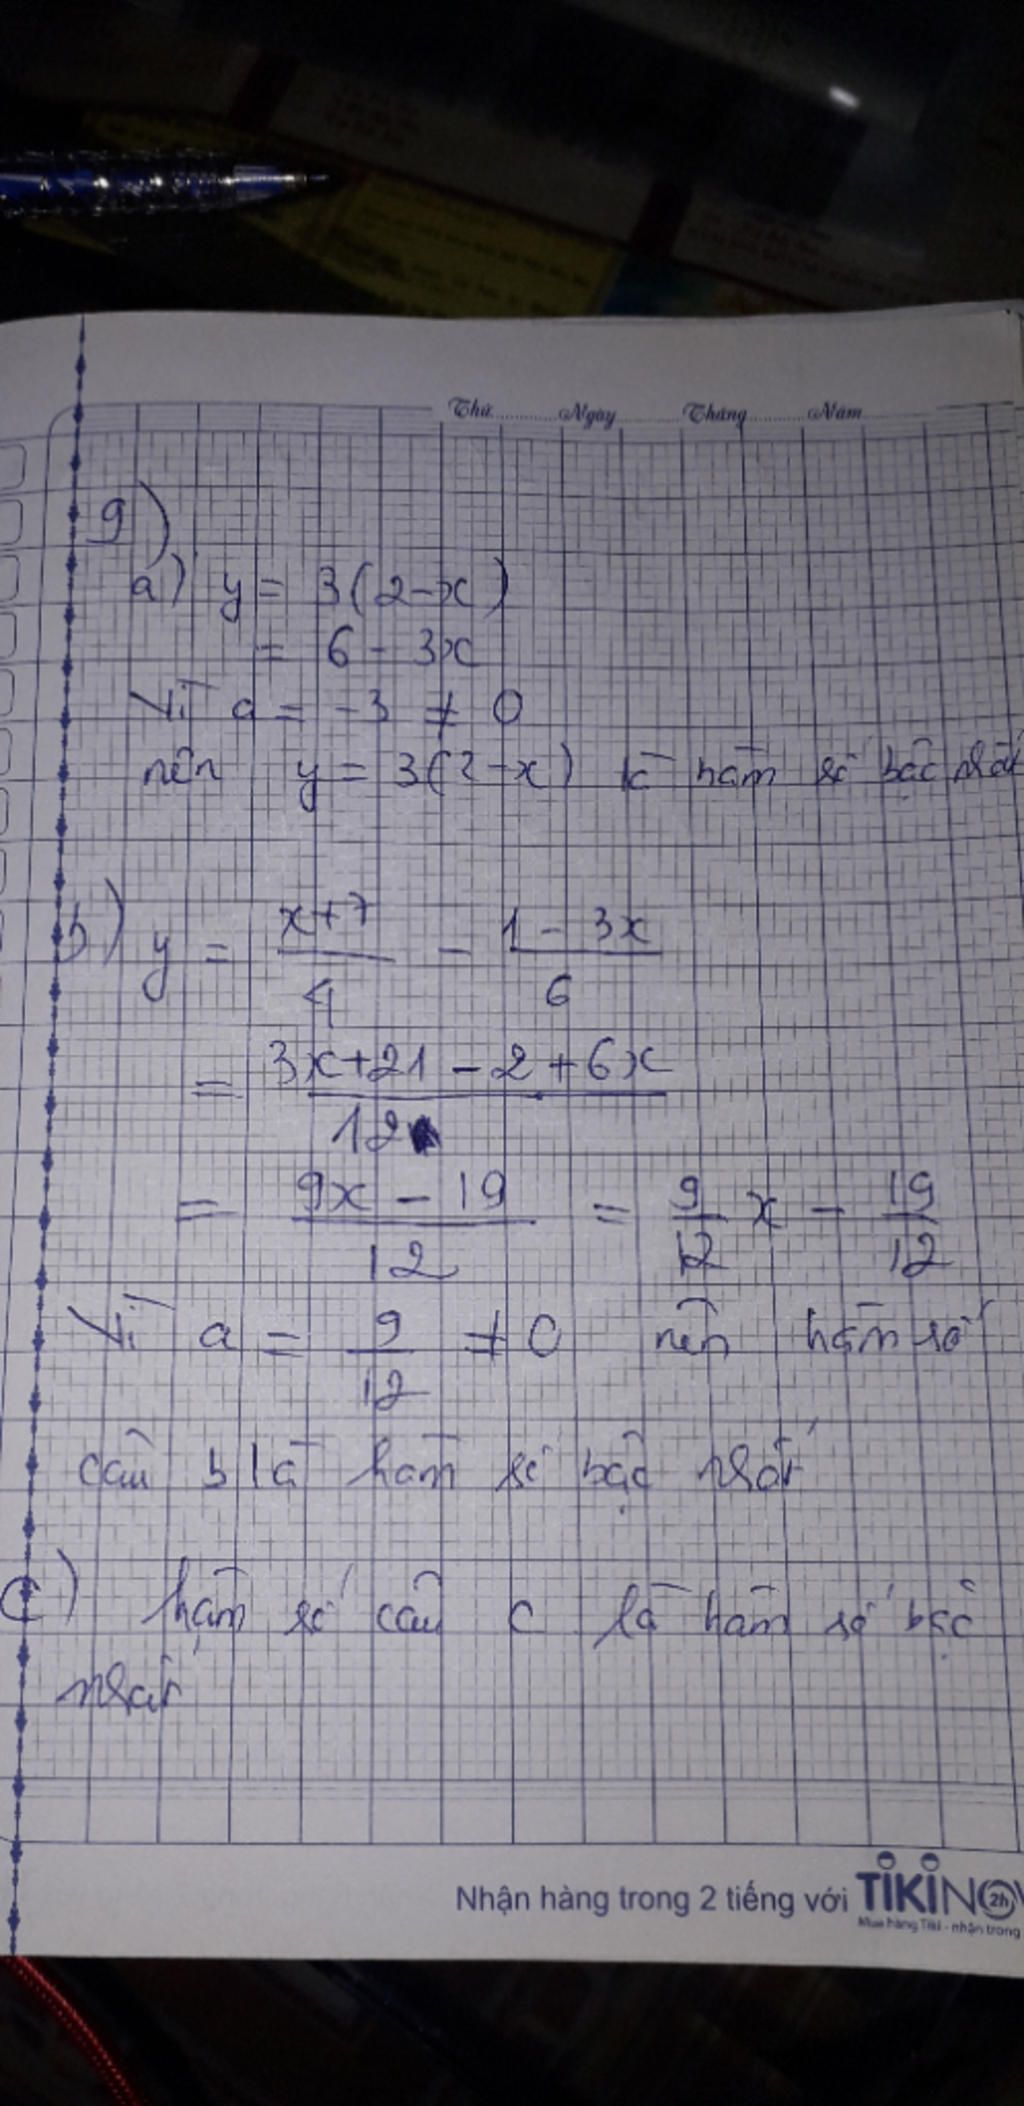 Thứ Ngày Tháng Năm
9)
a) y = 3(2-x)
= 6 - 3x
Vì a = -3 ≠ 0
nên y = 3(2-x) là hàm số bậc nhất
b) y = \frac{x+7}{4} - \frac{1-3x}{6}
= \frac{3x+21-2+6x}{12}
= \frac{9x-19}{12} = \frac{9}{12}x - \frac{19}{12}
Vì a = \frac{9}{12} ≠ 0 nên hàm số
câu b là hàm số bậc nhất
c) hàm số câu c là hàm số bậc
nhất
Nhận hàng trong 2 tiếng với TIKINOW 2h
Mua hàng Tiki - nhận trong